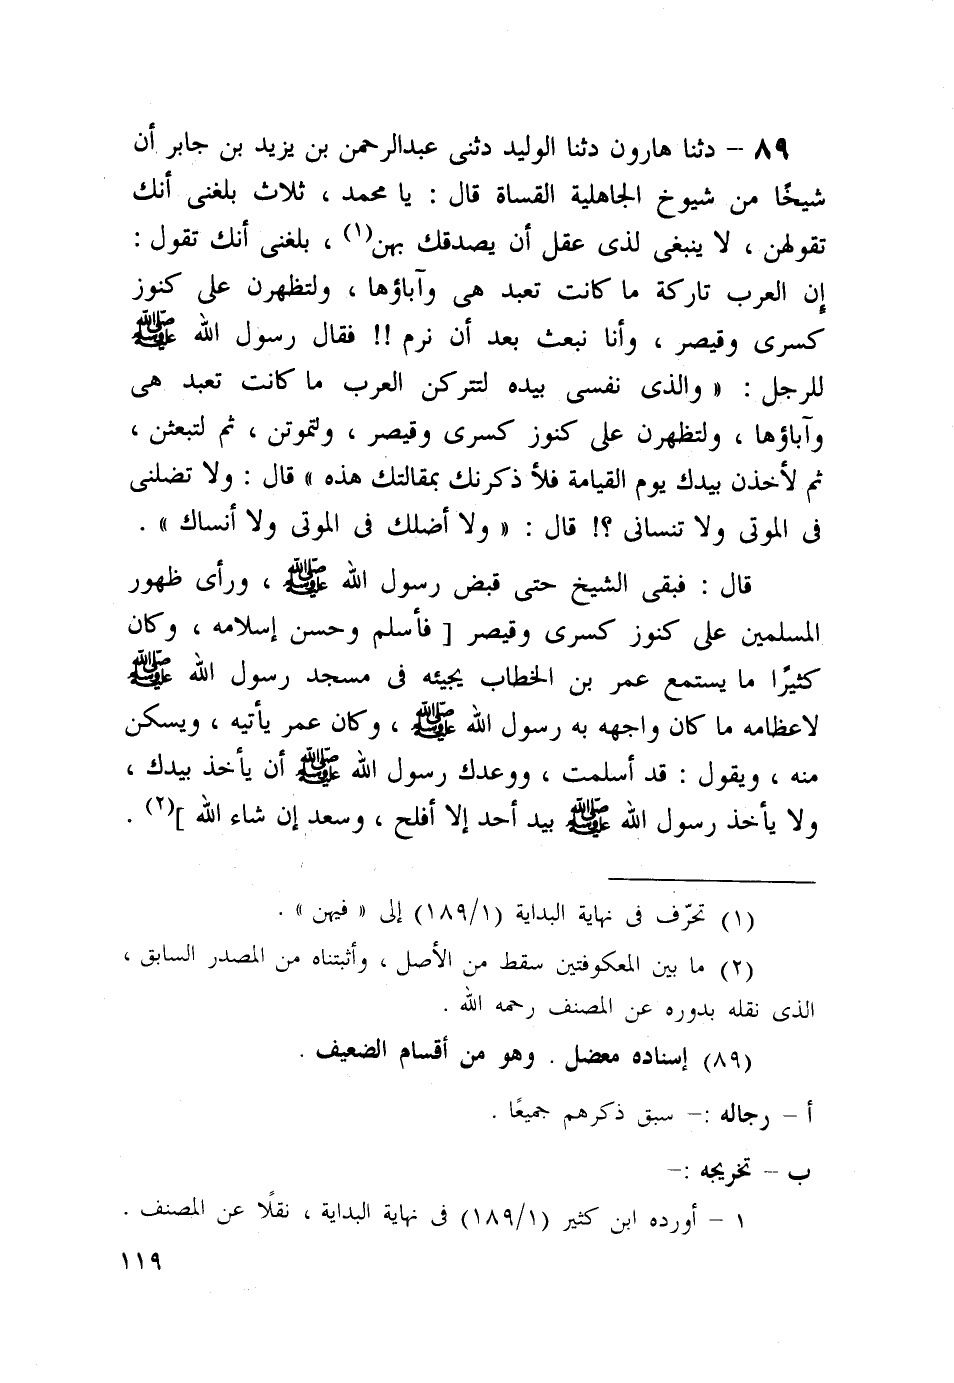 ٨٩ – دثنا هارون دثنا الوليد دثنى عبدالرحمن بن يزيد بن جابر أن
شيخًا من شيوخ الجاهلية القساة قال : يا محمد ، ثلاث بلغنى أنك
تقولهن ، لا ينبغى لذى عقل أن يصدقك بهن(١) ، بلغنى أنك تقول :
إن العرب تاركة ما كانت تعبد هى وآباؤها ، ولتظهرن على كنوز
كسرى وقيصر ، وأنا نبعث بعد أن نرم !! فقال رسول الله ﷺ
للرجل : « والذى نفسى بيده لتتركن العرب ما كانت تعبد هى
وآباؤها ، ولتظهرن على كنوز كسرى وقيصر ، ولتموتن ، ثم لتبعثن ،
ثم لأخذن بيدك يوم القيامة فلأ ذكرنك بمقالتك هذه » قال : ولا تضلنى
فى الموتى ولا تنسانى ؟! قال : « ولا أضلك فى الموتى ولا أنساك » .
قال : فبقى الشيخ حتى قبض رسول الله ﷺ ، ورأى ظهور
المسلمين على كنوز كسرى وقيصر [ فأسلم وحسن إسلامه ، وكان
كثيرًا ما يستمع عمر بن الخطاب يجيئه فى مسجد رسول الله ﷺ
لاعظامه ما كان واجهه به رسول الله ﷺ ، وكان عمر يأتيه ، ويسكن
منه ، ويقول : قد أسلمت ، ووعدك رسول الله ﷺ أن يأخذ بيدك ،
ولا يأخذ رسول الله ﷺ بيد أحد إلا أفلح ، وسعد إن شاء الله ](٢) .
(١) تحرّف فى نهاية البداية (١/‏١٨٩) إلى « فيهن » .
(٢) ما بين المعكوفتين سقط من الأصل ، وأثبتناه من المصدر السابق ،
الذى نقله بدوره عن المصنف رحمه الله .
(٨٩) إسناده معضل . وهو من أقسام الضعيف .
أ – رجاله :– سبق ذكرهم جميعًا .
ب – تخريجه :–
١ – أورده ابن كثير (١/‏١٨٩) فى نهاية البداية ، نقلًا عن المصنف .
١١٩